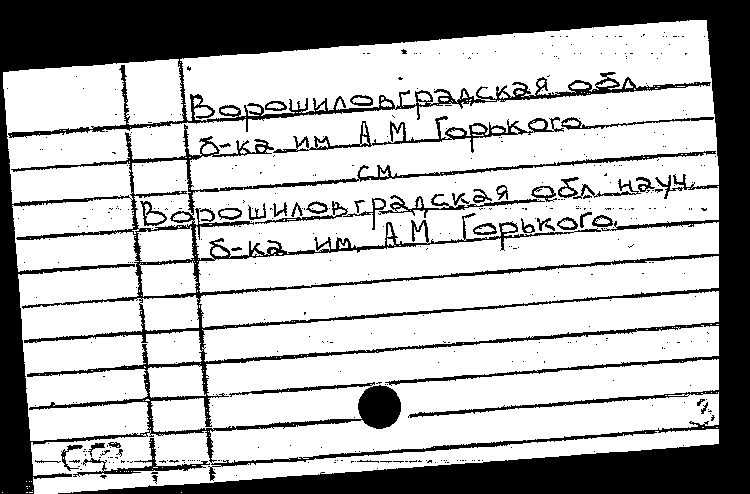 Ворошиловградская обл.
б-ка им. А. М. Горького
см.
Ворошиловградская обл. науч.
б-ка им. А. М. Горького.
3